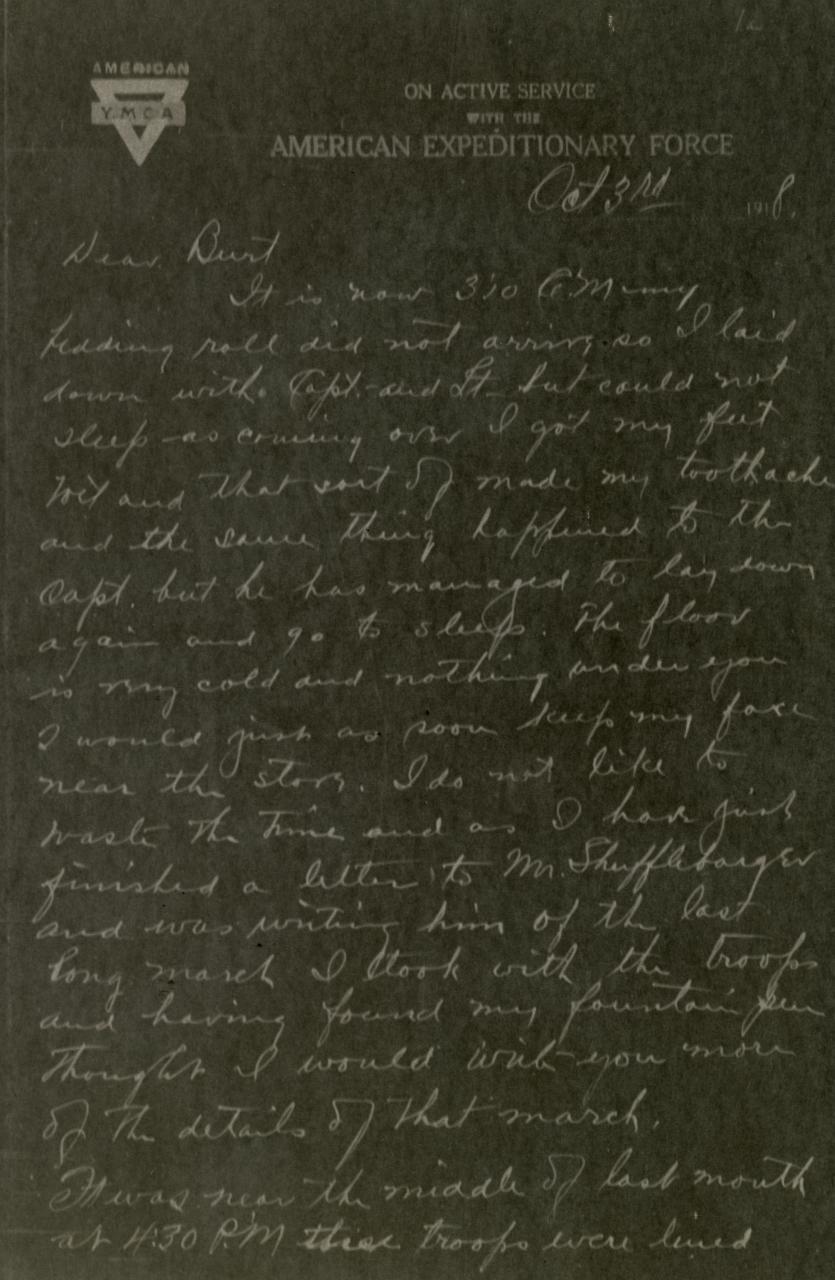 12
AMERICAN
YMCA
ON ACTIVE SERVICE
WITH THE
AMERICAN EXPEDITIONARY FORCE
Oct 3rd 1918.
Dear Burt
It is now 3:10 A.M. my
bedding roll did not arrive so I laid
down with Capt. and Lt. but could not
sleep as coming over I got my feet
wet and that sort of made my toothache
and the same thing happened to the
Capt. but he has managed to lay down
again and go to sleep. The floor
is very cold and nothing under you
I would just as soon keep my face
near the stove. I do not like to
waste the time and as I have just
finished a letter to Mr. Shufflebarger
and was writing him of the last
long march I took with the troops
and having found my fountain pen
thought I would write you more
of the details of that march.
It was near the middle of last month
at 4:30 P.M. troops were lined